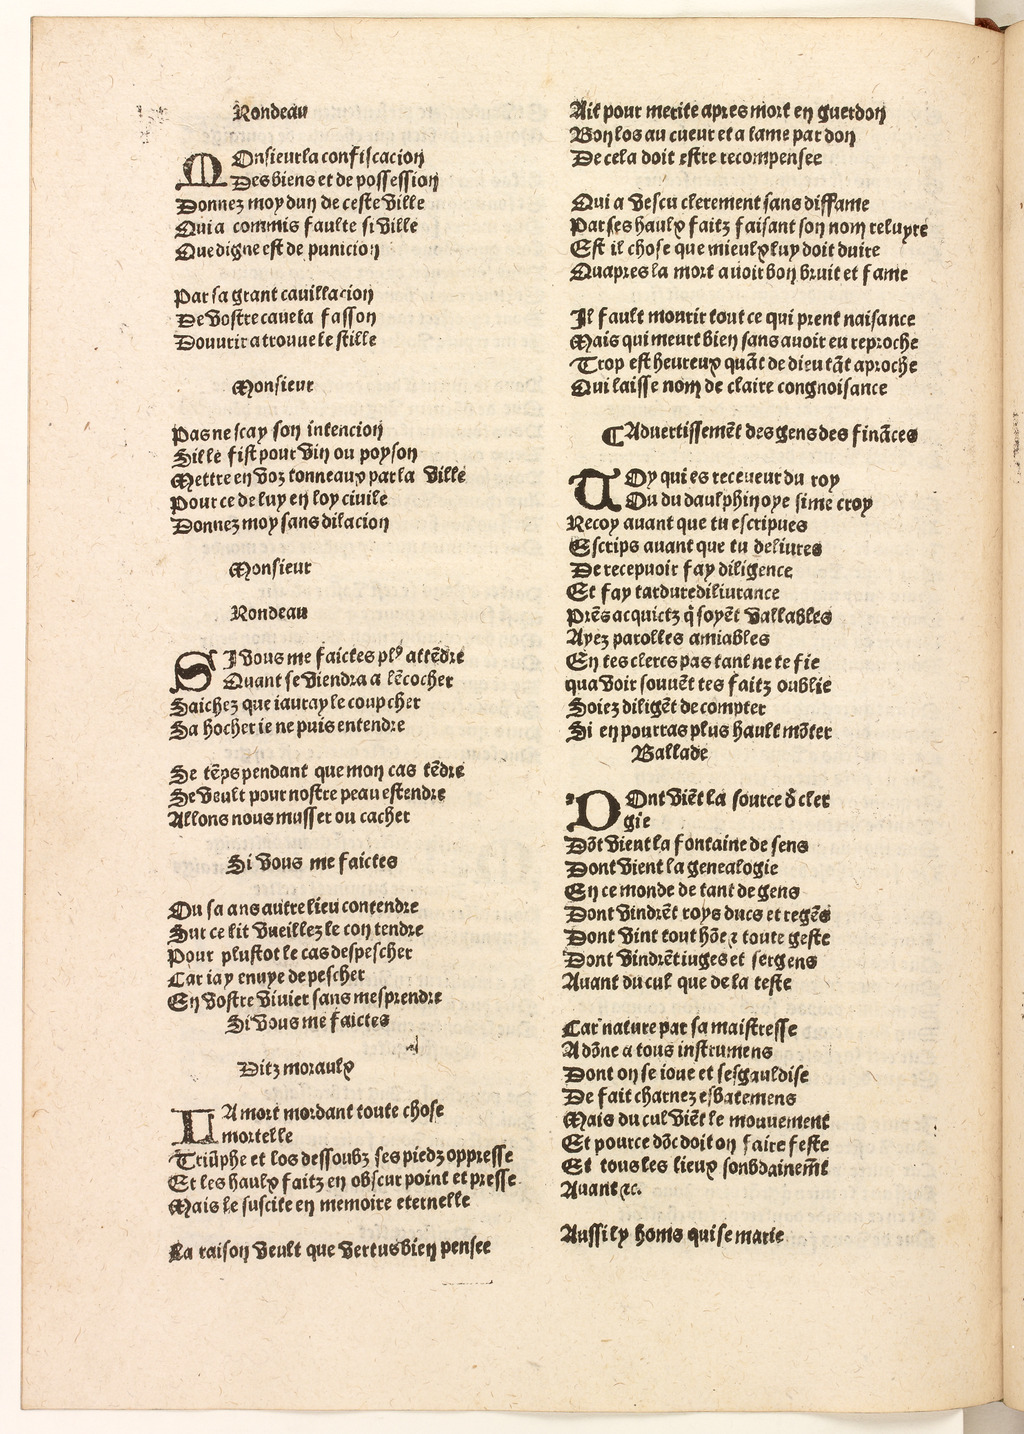 Rondeau
MOnsieur la confiscacion
Des biens et de possession
Donnez moy dun de ceste ville
Qui a commis faulte si ville
Que digne est de punicion
Par sa grant cauillacion
De vostre cauela fasson
Douurir a trouue le stille
Monsieur
Pas ne scay son intencion
Sille fist pour vin ou poyson
Mettre en voz tonneaux par la ville
Pour ce de luy en loy ciuile
Donnez moy sans dilacion
Monsieur
Rondeau
SI vous me faictes plꝰ attēdre
Quant se viendra a lēcocher
Saichez que iauray le coup cher
Sa hocher ie ne puis entendre
Se tēps pendant que mon cas tēdre
Se veult pour nostre peau estendre
Allons nous musser ou cacher
Si vous me faictes
Ou sa ans autre lieu contendre
Sur ce lit vueillez le con tendre
Pour plustot le cas despescher
Car iay enuye de pescher
En vostre viuier sans mesprendre
Si vous me faictes
Ditz moraulx
LA mort mordant toute chose
mortelle
Triūphe et los dessoubz ses piedz oppresse
Et les haulx faitz en obscur point et presse
Mais le suscite en memoire eternelle
La raison veult que vertus bien pensee
Ait pour merite apres mort en guerdon
Bon los au cueur et a lame pardon
De cela doit estre recompensee
Qui a vescu clerement sans diffame
Par ses haulx faitz faisant son nom reluyre
Est il chose que mieulx luy doit duire
Quapres la mort auoir bon bruit et fame
Il fault mourir tout ce qui prent naisance
Mais qui meurt bien sans auoir eu reproche
Trop est heureux quāt de dieu tāt aproche
Qui laisse nom de claire congnoisance
¶Aduertissemēt des gens des fināces
TOy qui es receueur du roy
Ou du daulphin oye si me croy
Recoy auant que tu escripues
Escrips auant que tu deliures
De recepuoir fay diligence
Et fay tardure diliurance
Prēs acquictz q̄ soyēt vallables
Ayez parolles amiables
En tes clercs pas tant ne te fie
qua voir souuēt tes faitz oublie
Soiez diligēt de compter
Si en pourras plus hault mōter
Ballade
DOnt viēt la source d̄ cler
gie
Dōt vient la fontaine de sens
Dont vient la genealogie
En ce monde de tant de gens
Dont vindrēt roys ducs et regēs
Dont vint tout hōe ⁊ toute geste
Dont vindrēt iuges et sergens
Auant du cul que de la teste
Car nature par sa maistresse
A dōne a tous instrumens
Dont on se ioue et sesgauldise
De fait charnez esbatemens
Mais du cul viēt le mouuement
Et pource dōc doit on faire feste
Et tous les lieux soubdainemēt
Auant ⁊c.
Aussi ly homs qui se marie